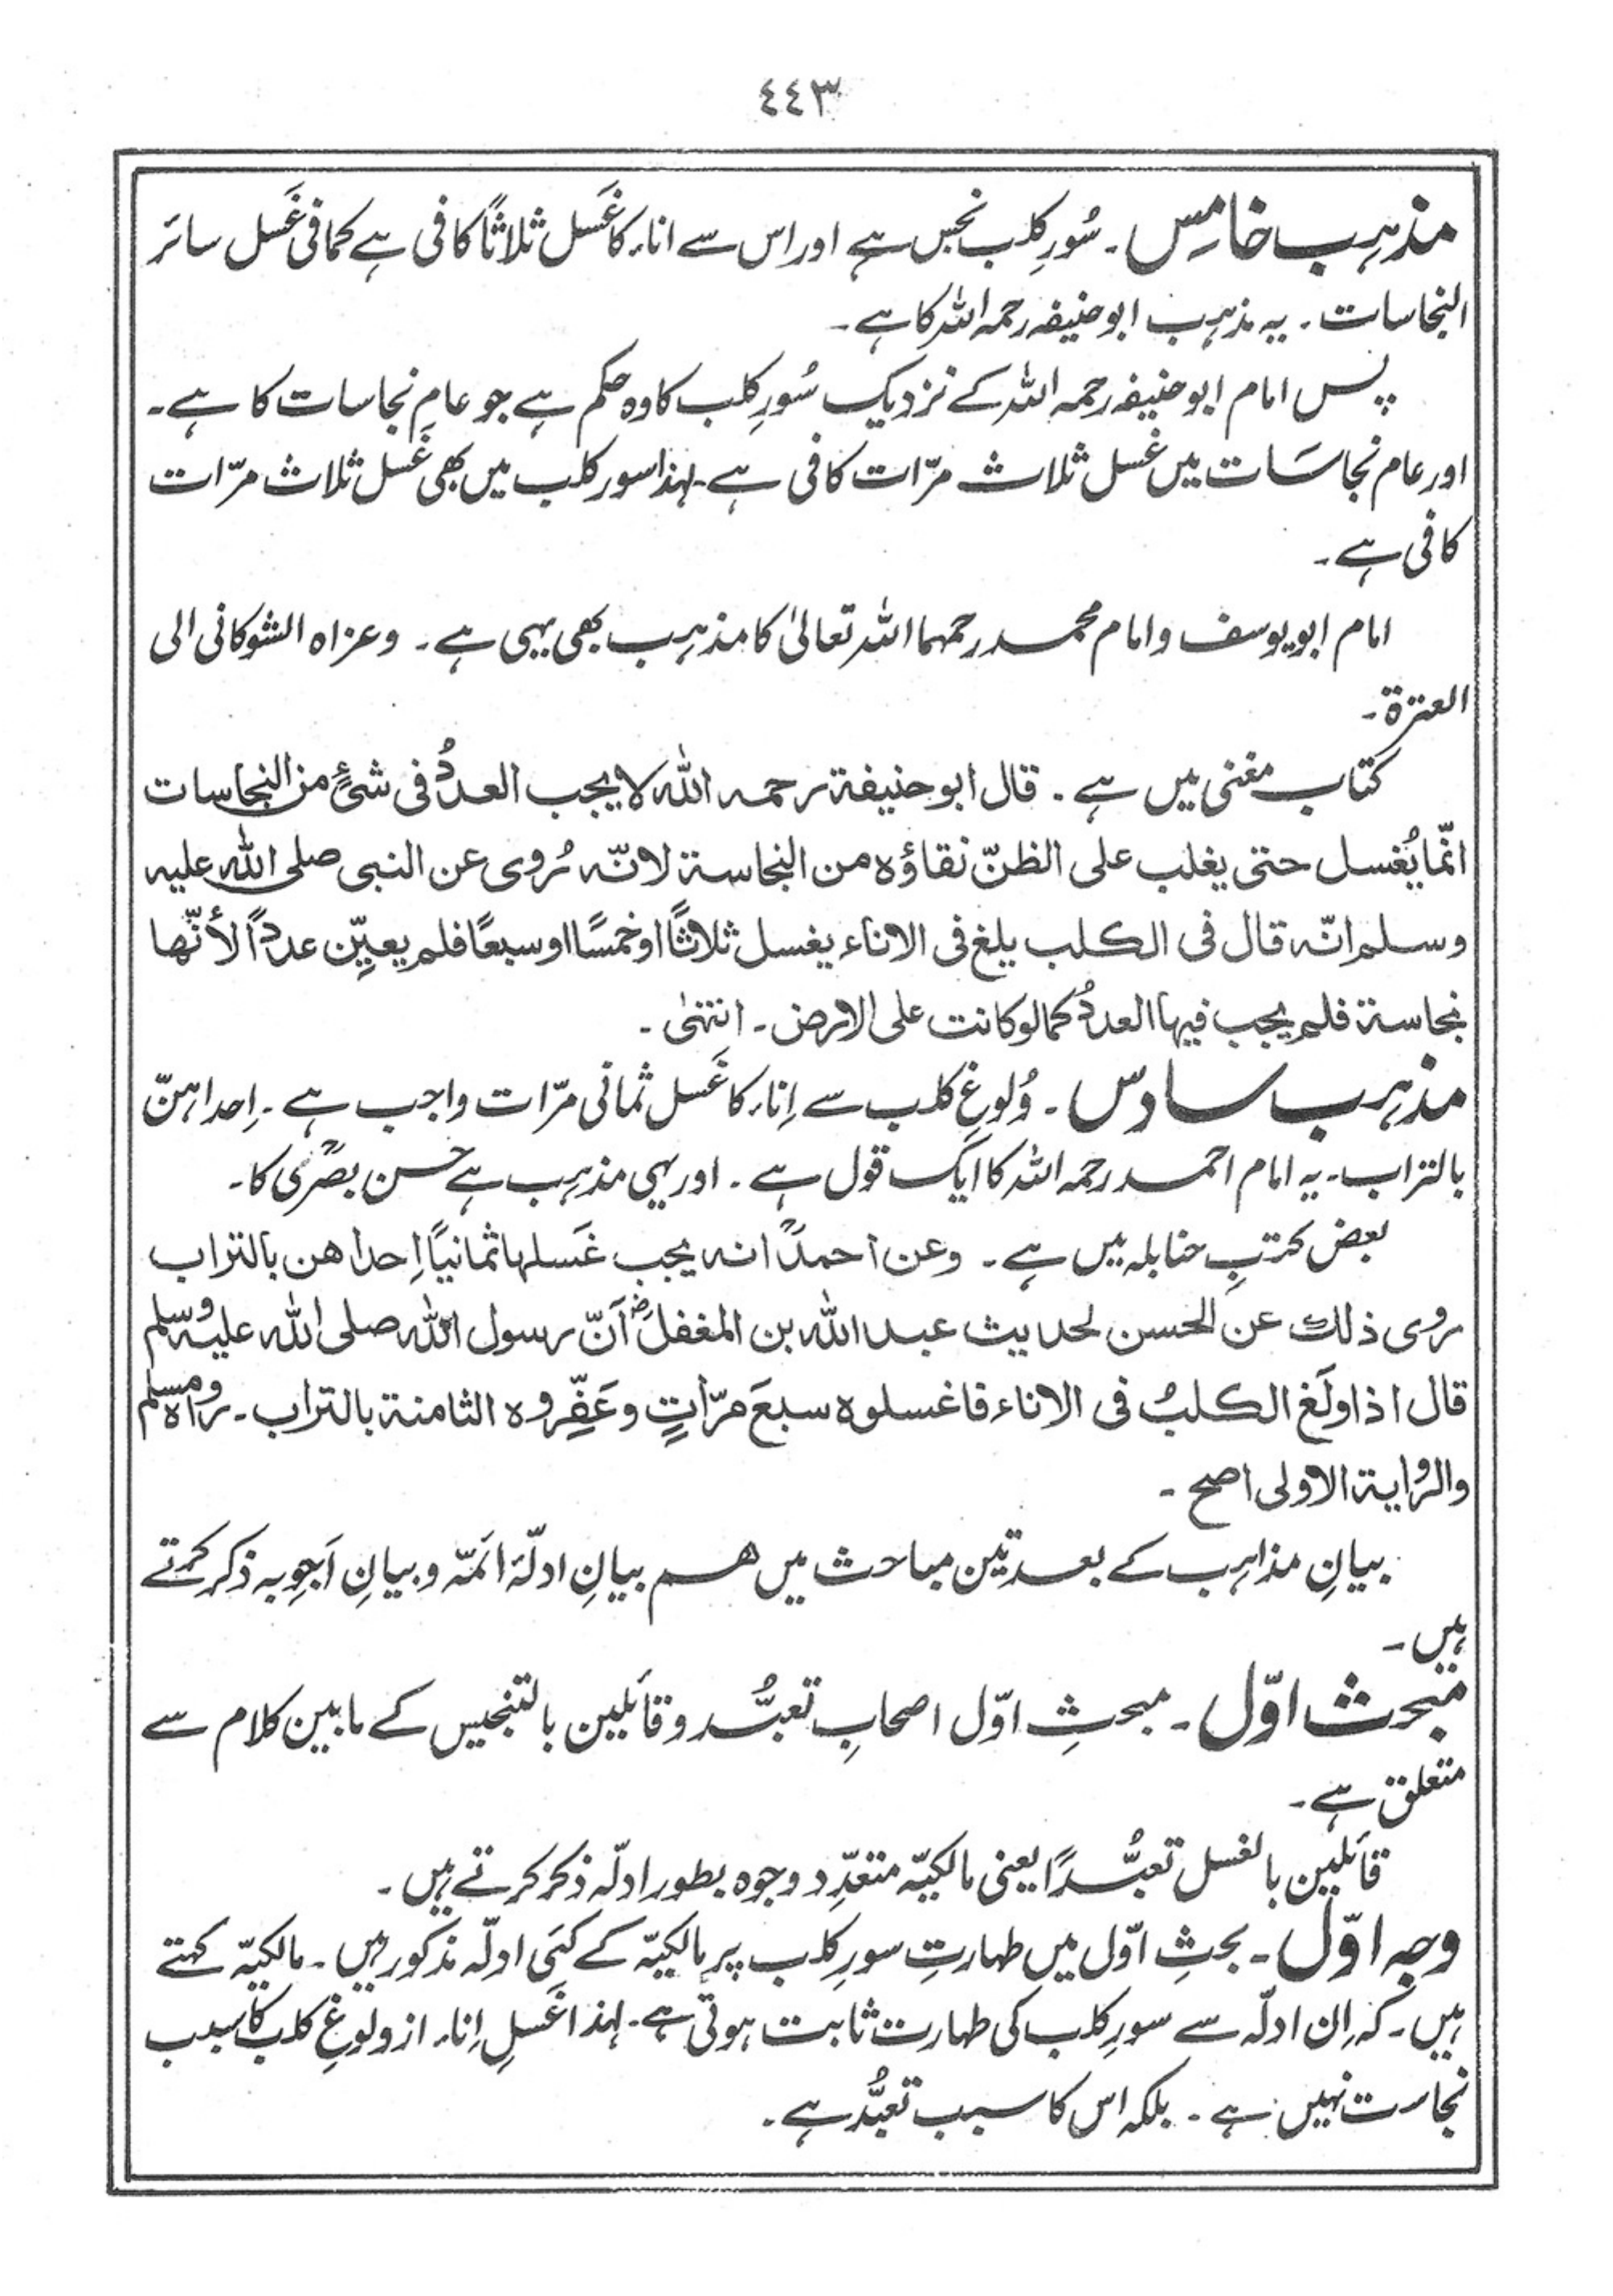 ٤٤٣
مذہب خامس ۔ سُورِ کلب نجس ہے اور اس سے اناء کا غَسل ثلاثاً کافی ہے کما فی غَسل سائر
النجاسات ۔ یہ مذہب ابو حنیفہ رحمہ اللہ کا ہے ۔
پس امام ابو حنیفہ رحمہ اللہ کے نزدیک سُورِ کلب کا وہ حکم ہے جو عام نجاسات کا ہے ۔
اور عام نجاسَات میں غسل ثلاث مرّات کافی ہے ۔ لہذا سور کلب میں بھی غَسل ثلاث مرّات
کافی ہے ۔
امام ابو یوسف و امام محمد رحمہما اللہ تعالیٰ کا مذہب بھی یہی ہے ۔ وعزاہ الشوکانی الی
العترة ۔
کتاب مغنی میں ہے ۔ قال ابو حنیفة رحمہ اللہ لا یجب العددُ فی شئٍ من النجاسات
انّما یُغسل حتی یغلب علی الظنّ نقاؤہ من النجاسة لانّہ رُوی عن النبی صلی اللہ علیہ
وسلم انّہ قال فی الکلب یلغ فی الاناء یغسل ثلاثًا او خمسًا او سبعًا فلم یعیّن عدداً لأنّھا
نجاسة فلم یجب فیہا العددُ کما لو کانت علی الارض ۔ انتہٰی ۔
مذہب سادس ۔ وُلوغِ کلب سے اِناء کا غَسل ثمانی مرّات واجب ہے ۔ اِحداہنّ
بالتراب ۔ یہ امام احمد رحمہ اللہ کا ایک قول ہے ۔ اور یہی مذہب ہے حسن بصریؒ کا ۔
بعض کتبِ حنابلہ میں ہے ۔ وعن احمدؒ انہ یجب غَسلہا ثمانیًا اِحداھن بالتراب
روی ذلک عن الحسن لحدیث عبد اللہ بن المغفلؓ أنّ رسول اللہ صلی اللہ علیہ وسلم
قال اذا ولَغ الکلبُ فی الاناء فاغسلوہ سبعَ مرّاتٍ وعَفِّروہ الثامنة بالتراب ۔ رواہ مسلم
والرّوایة الاولی اصح ۔
بیانِ مذاہب کے بعد تین مباحث میں ھم بیانِ ادلّۂ ائمّہ و بیانِ اَجوِبہ ذکر کرتے
ہیں ۔
مبحث اوّل ۔ مبحثِ اوّل اصحابِ تعبُّد و قائلین بالتنجیس کے مابین کلام سے
متعلق ہے ۔
قائلین بالغسل تعبُّدًا یعنی مالکیّہ متعدِّد وجوہ بطور ادلّہ ذکر کرتے ہیں ۔
وجہ اوّل ۔ بحثِ اوّل میں طہارتِ سورِ کلب پر مالکیّہ کے کئی ادلّہ مذکور ہیں ۔ مالکیّہ کہتے
ہیں ۔ کہ اِن ادلّہ سے سورِ کلب کی طہارت ثابت ہوتی ہے ۔ لہذا غَسلِ اِناء از ولوغِ کلب کا سبب
نجاست نہیں ہے ۔ بلکہ اس کا سبب تعبُّد ہے ۔